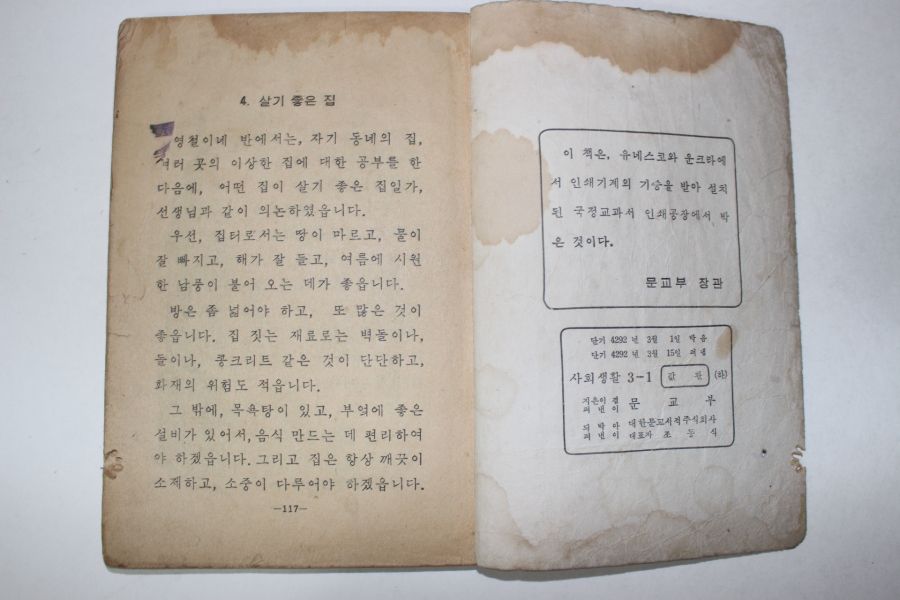 4. 살기 좋은 집
영철이네 반에서는, 자기 동네의 집,
여러 곳의 이상한 집에 대한 공부를 한
다음에, 어떤 집이 살기 좋은 집일가,
선생님과 같이 의논하였읍니다.
우선, 집터로서는 땅이 마르고, 물이
잘 빠지고, 해가 잘 들고, 여름에 시원
한 남풍이 불어 오는 데가 좋읍니다.
방은 좀 넓어야 하고, 또 많은 것이
좋읍니다. 집 짓는 재료로는 벽돌이나,
돌이나, 콩크리트 같은 것이 단단하고,
화재의 위험도 적읍니다.
그 밖에, 목욕탕이 있고, 부엌에 좋은
설비가 있어서, 음식 만드는 데 편리하여
야 하겠읍니다. 그리고 집은 항상 깨끗이
소제하고, 소중이 다루어야 하겠읍니다.
—117—
이 책은, 유네스코와 운크라에
서 인쇄기계의 기증을 받아 설치
된 국정교과서 인쇄공장에서 박
은 것이다.
문교부 장관
단기 4292 년 3월 1일 박음
단기 4292 년 3월 15일 펴냄
사회생활 3-1 (하)
지은이 겸 펴낸이 문교부
박아 펴낸이 대한문교서적주식회사
대표자 조동식